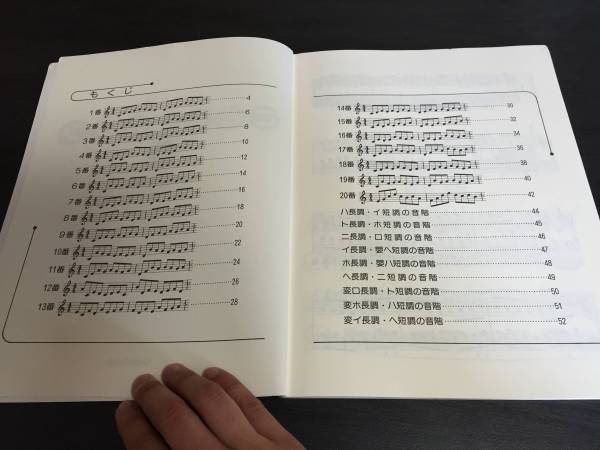 もくじ
1番 4
2番 6
3番 8
4番 10
5番 12
6番 14
7番 16
8番 18
9番 20
10番 22
11番 24
12番 26
13番 28
14番 30
15番 32
16番 34
17番 36
18番 38
19番 40
20番 42
ハ長調・イ短調の音階 44
ト長調・ホ短調の音階 45
ニ長調・ロ短調の音階 46
イ長調・嬰ヘ短調の音階 47
ホ長調・嬰ハ短調の音階 48
ヘ長調・ニ短調の音階 49
変ロ長調・ト短調の音階 50
変ホ長調・ハ短調の音階 51
変イ長調・ヘ短調の音階 52